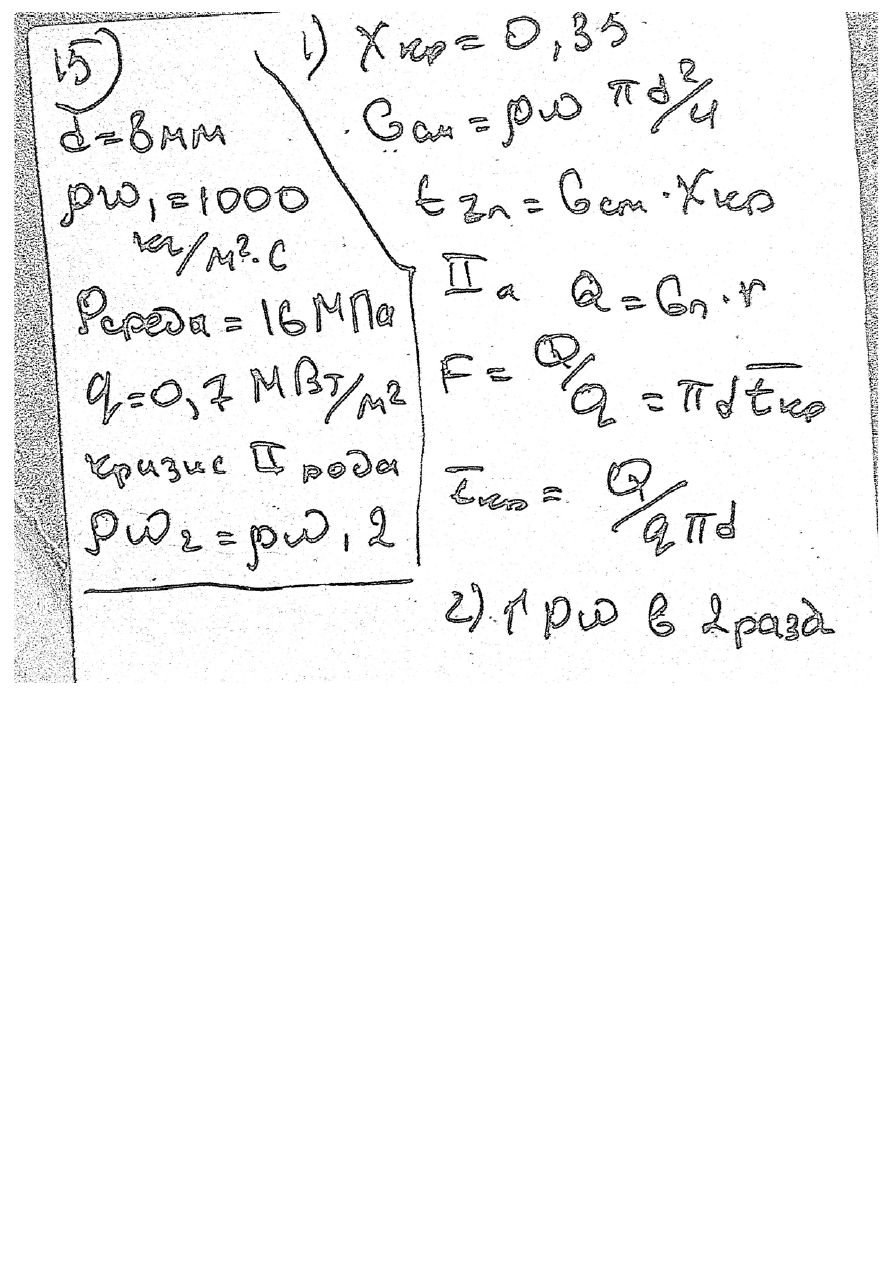 15)
d=8мм
ρw₁=1000
кг/м²·С
Pсреда=16МПа
q=0,7 МВт/м²
кризис II рода
ρw₂=ρw₁2
1) Xкр=0,35
Gсм=ρw πd²/4
t zп=Gсм·Xкр
II а Q=Gп·r
F=Q/q=πd t̅кр
t̅кр=Q/qπd
2) ↑ρw в 2раза